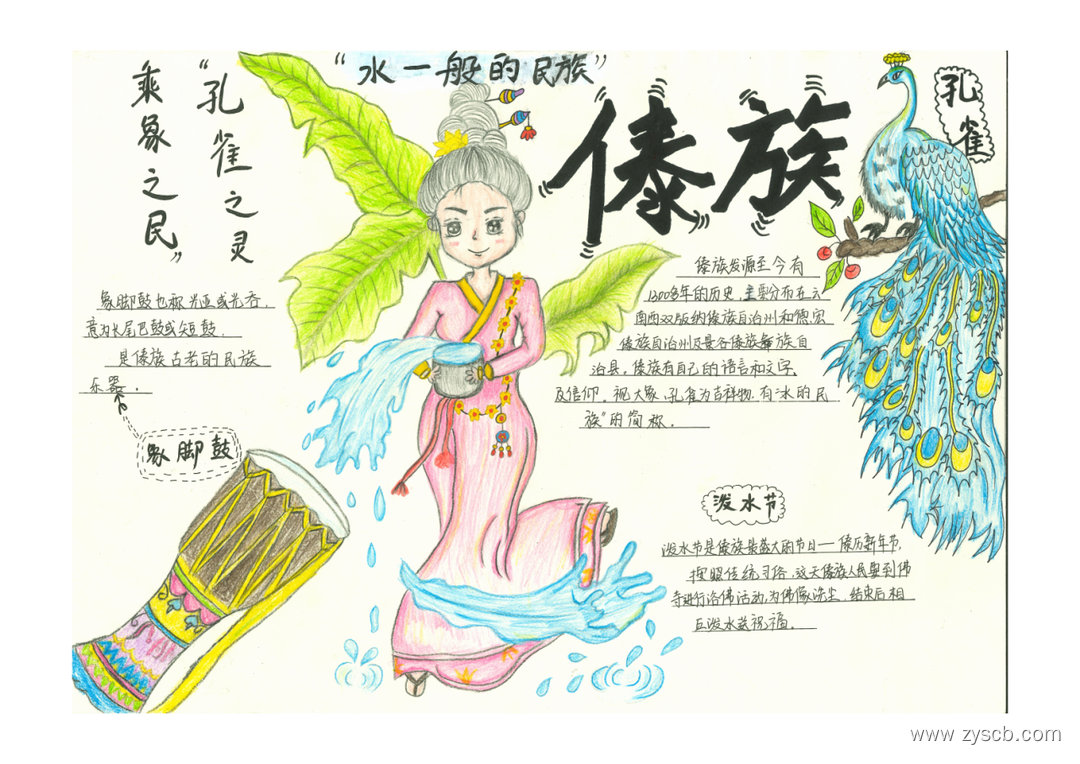 “水一般的民族”
傣族
孔雀
“孔雀之灵
乘象之民”
象脚鼓也称光亚或光吞,
意为长尾巴鼓或短鼓.
是傣族古老的民族
乐器.
象脚鼓
傣族发源至今有
1300多年的历史,主要分布在云
南西双版纳傣族自治州和德宏
傣族自治州及景谷傣族彝族自
治县,傣族有自己的语言和文字,
及信仰。视大象、孔雀为吉祥物.有“水的民
族”的简称.
泼水节
泼水节是傣族最盛大的节日——傣历新年节,
按照传统习俗,这天傣族人民要到佛
寺进行浴佛活动,为佛像洗尘.结束后相
互泼水兹祝福。
www.zyscb.com